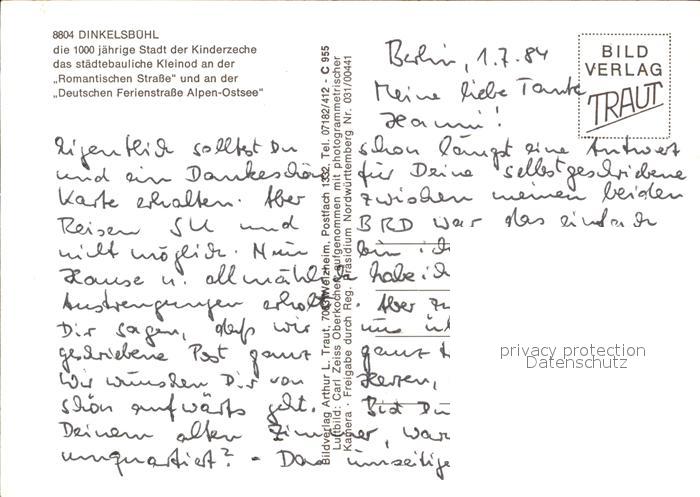 8804 DINKELSBÜHL
die 1000 jährige Stadt der Kinderzeche
das städtebauliche Kleinod an der
„Romantischen Straße“ und an der
„Deutschen Ferienstraße Alpen-Ostsee“
BILD
VERLAG
TRAUT
Berlin, 1.7.84
Meine liebe Tante
Hanni!
Eigentlich solltest Du schon längst eine Antwort
und ein Dankeschön für Deine selbstgeschriebene
Karte erhalten. Aber zwischen meinen beiden
Reisen SU und BRD war das einfach
nicht möglich. Nun bin ich
Hause u. allmählich habe ich
Anstrengungen erholt. Aber zu
Dir sagen, daß wir uns
geschriebene Post ganz
Wir wünschen Dir von Herzen,
schön aufwärts geht. Bist Du
Deinem alten Zimmer, war
umquartiert? - Das umseitige
Bildverlag Arthur L. Traut, 7063 Welzheim, Postfach 1332, Tel. 07182/412 - C 955
Luftbild: Carl Zeiss Oberkochen, aufgenommen mit photogrammetrischer
Kamera · Freigabe durch Reg. Präsidium Nordwürttemberg Nr. 031/00441
privacy protection
Datenschutz